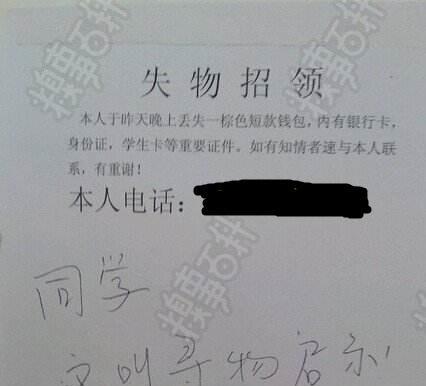 失物招领
本人于昨天晚上丢失一棕色短款钱包，内有银行卡，
身份证，学生卡等重要证件。如有知情者速与本人联
系，有重谢！
本人电话：
同学
叫寻物启示
搜事百科
搜事百科
搜事百科